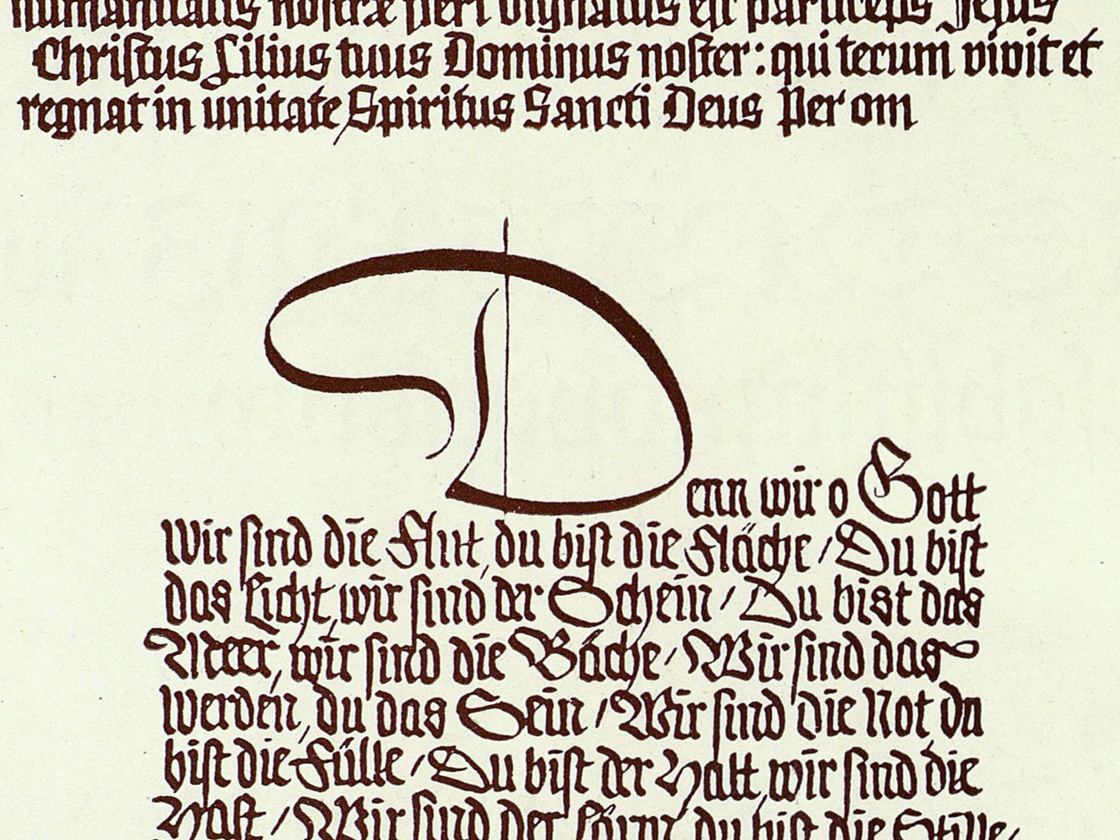 humanitatis nostræ fieri dignatus est particeps Jesus
Christus Filius tuus Dominus noster: qui tecum vivit et
regnat in unitate Spiritus Sancti Deus Per om
Denn wir o Gott
Wir sind die Flut, du bist die Fläche / Du bist
das Licht, wir sind der Schein / Du bist das
Meer, wir sind die Bäche / Wir sind das
Werden, du das Sein / Wir sind die Not du
bist die Fülle / Du bist der Halt, wir sind die
Hast / Wir sind der Lärm, du bist die Stille /